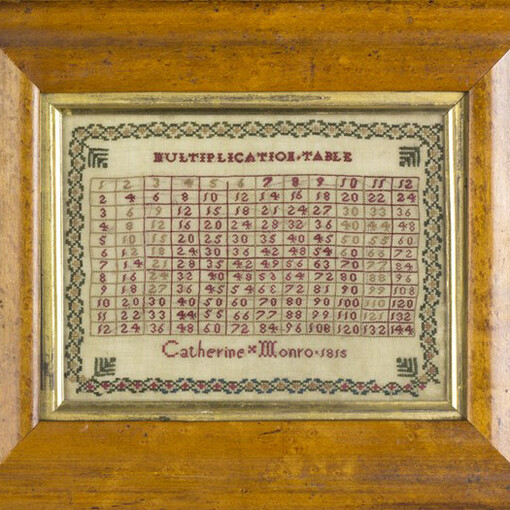 MULTIPLICATION TABLE
1 2 3 4 5 6 7 8 9 10 11 12
2 4 6 8 10 12 14 16 18 20 22 24
3 6 9 12 15 18 21 24 27 30 33 36
4 8 12 16 20 24 28 32 36 40 44 48
5 10 15 20 25 30 35 40 45 50 55 60
6 12 18 24 30 36 42 48 54 60 66 72
7 14 21 28 35 42 49 56 63 70 77 84
8 16 24 32 40 48 56 64 72 80 88 96
9 18 27 36 45 54 63 72 81 90 99 108
10 20 30 40 50 60 70 80 90 100 110 120
11 22 33 44 55 66 77 88 99 110 121 132
12 24 36 48 60 72 84 96 108 120 132 144
Catherine × Monro · 1815